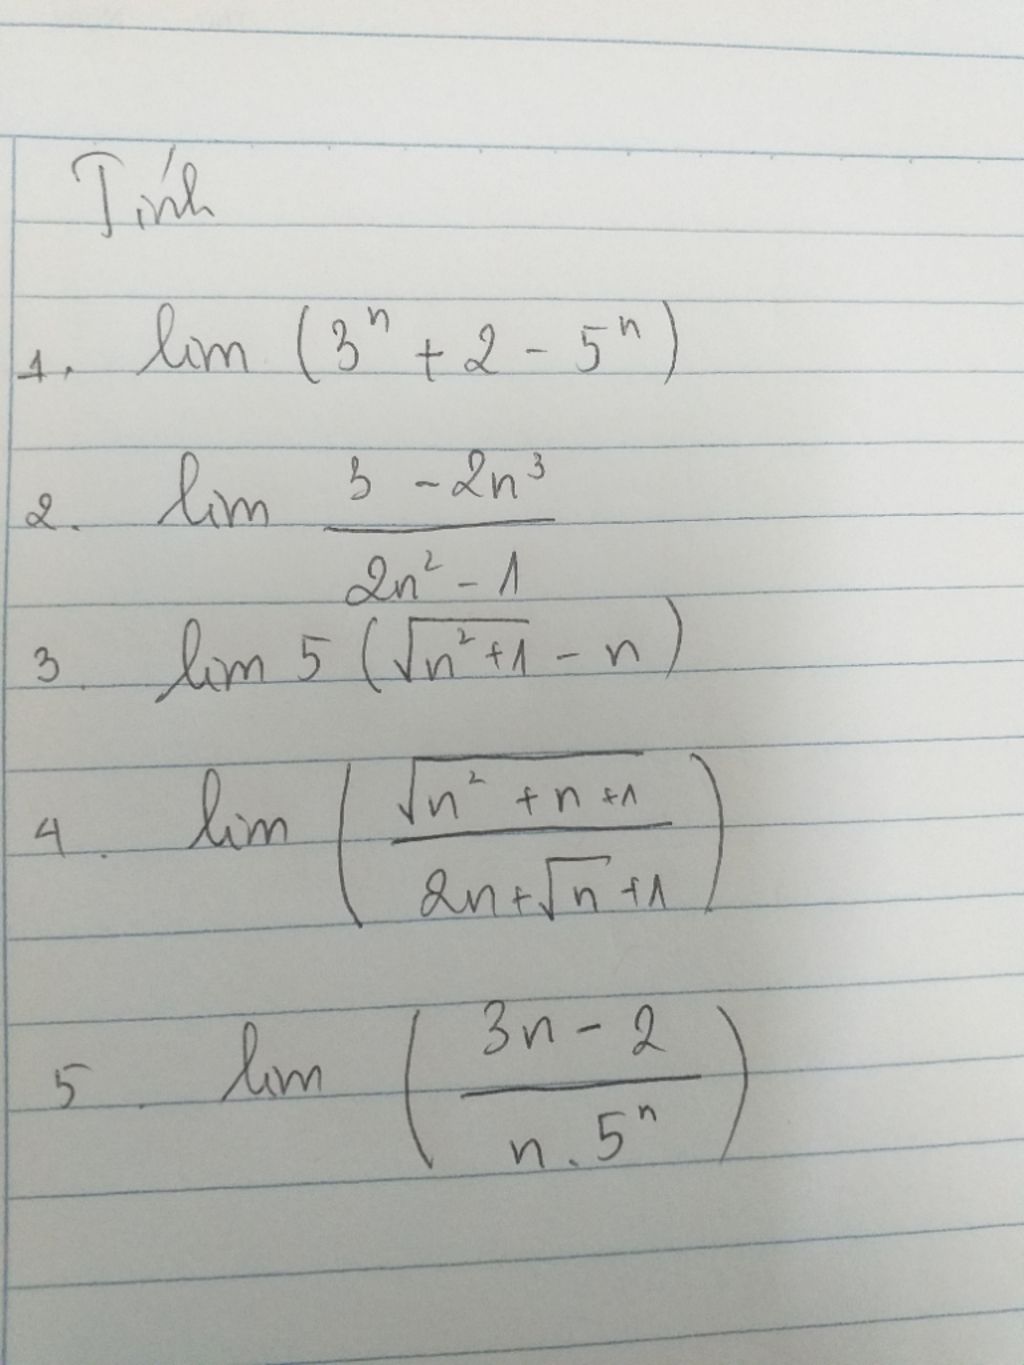 Tính
1. lim (3ⁿ + 2 - 5ⁿ)
2. lim (3 - 2n³)/(2n² - 1)
3. lim 5 (√(n²+1) - n)
4. lim (√(n² + n + 1)/(2n + √n + 1))
5. lim ((3n - 2)/(n . 5ⁿ))